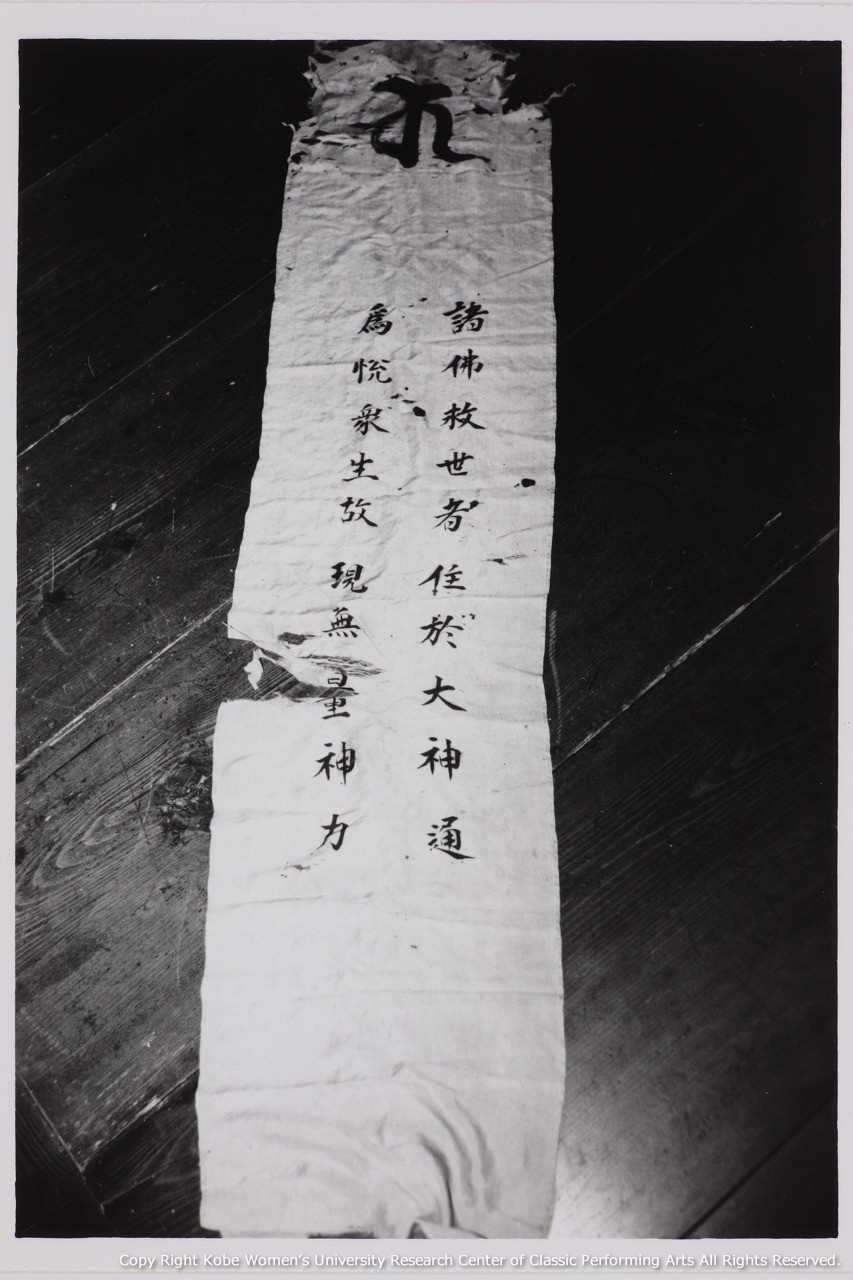 諸佛救世者 住於大神通
爲悦衆生故 現無量神力
Copy Right Kobe Women's University Research Center of Classic Performing Arts All Rights Reserved.